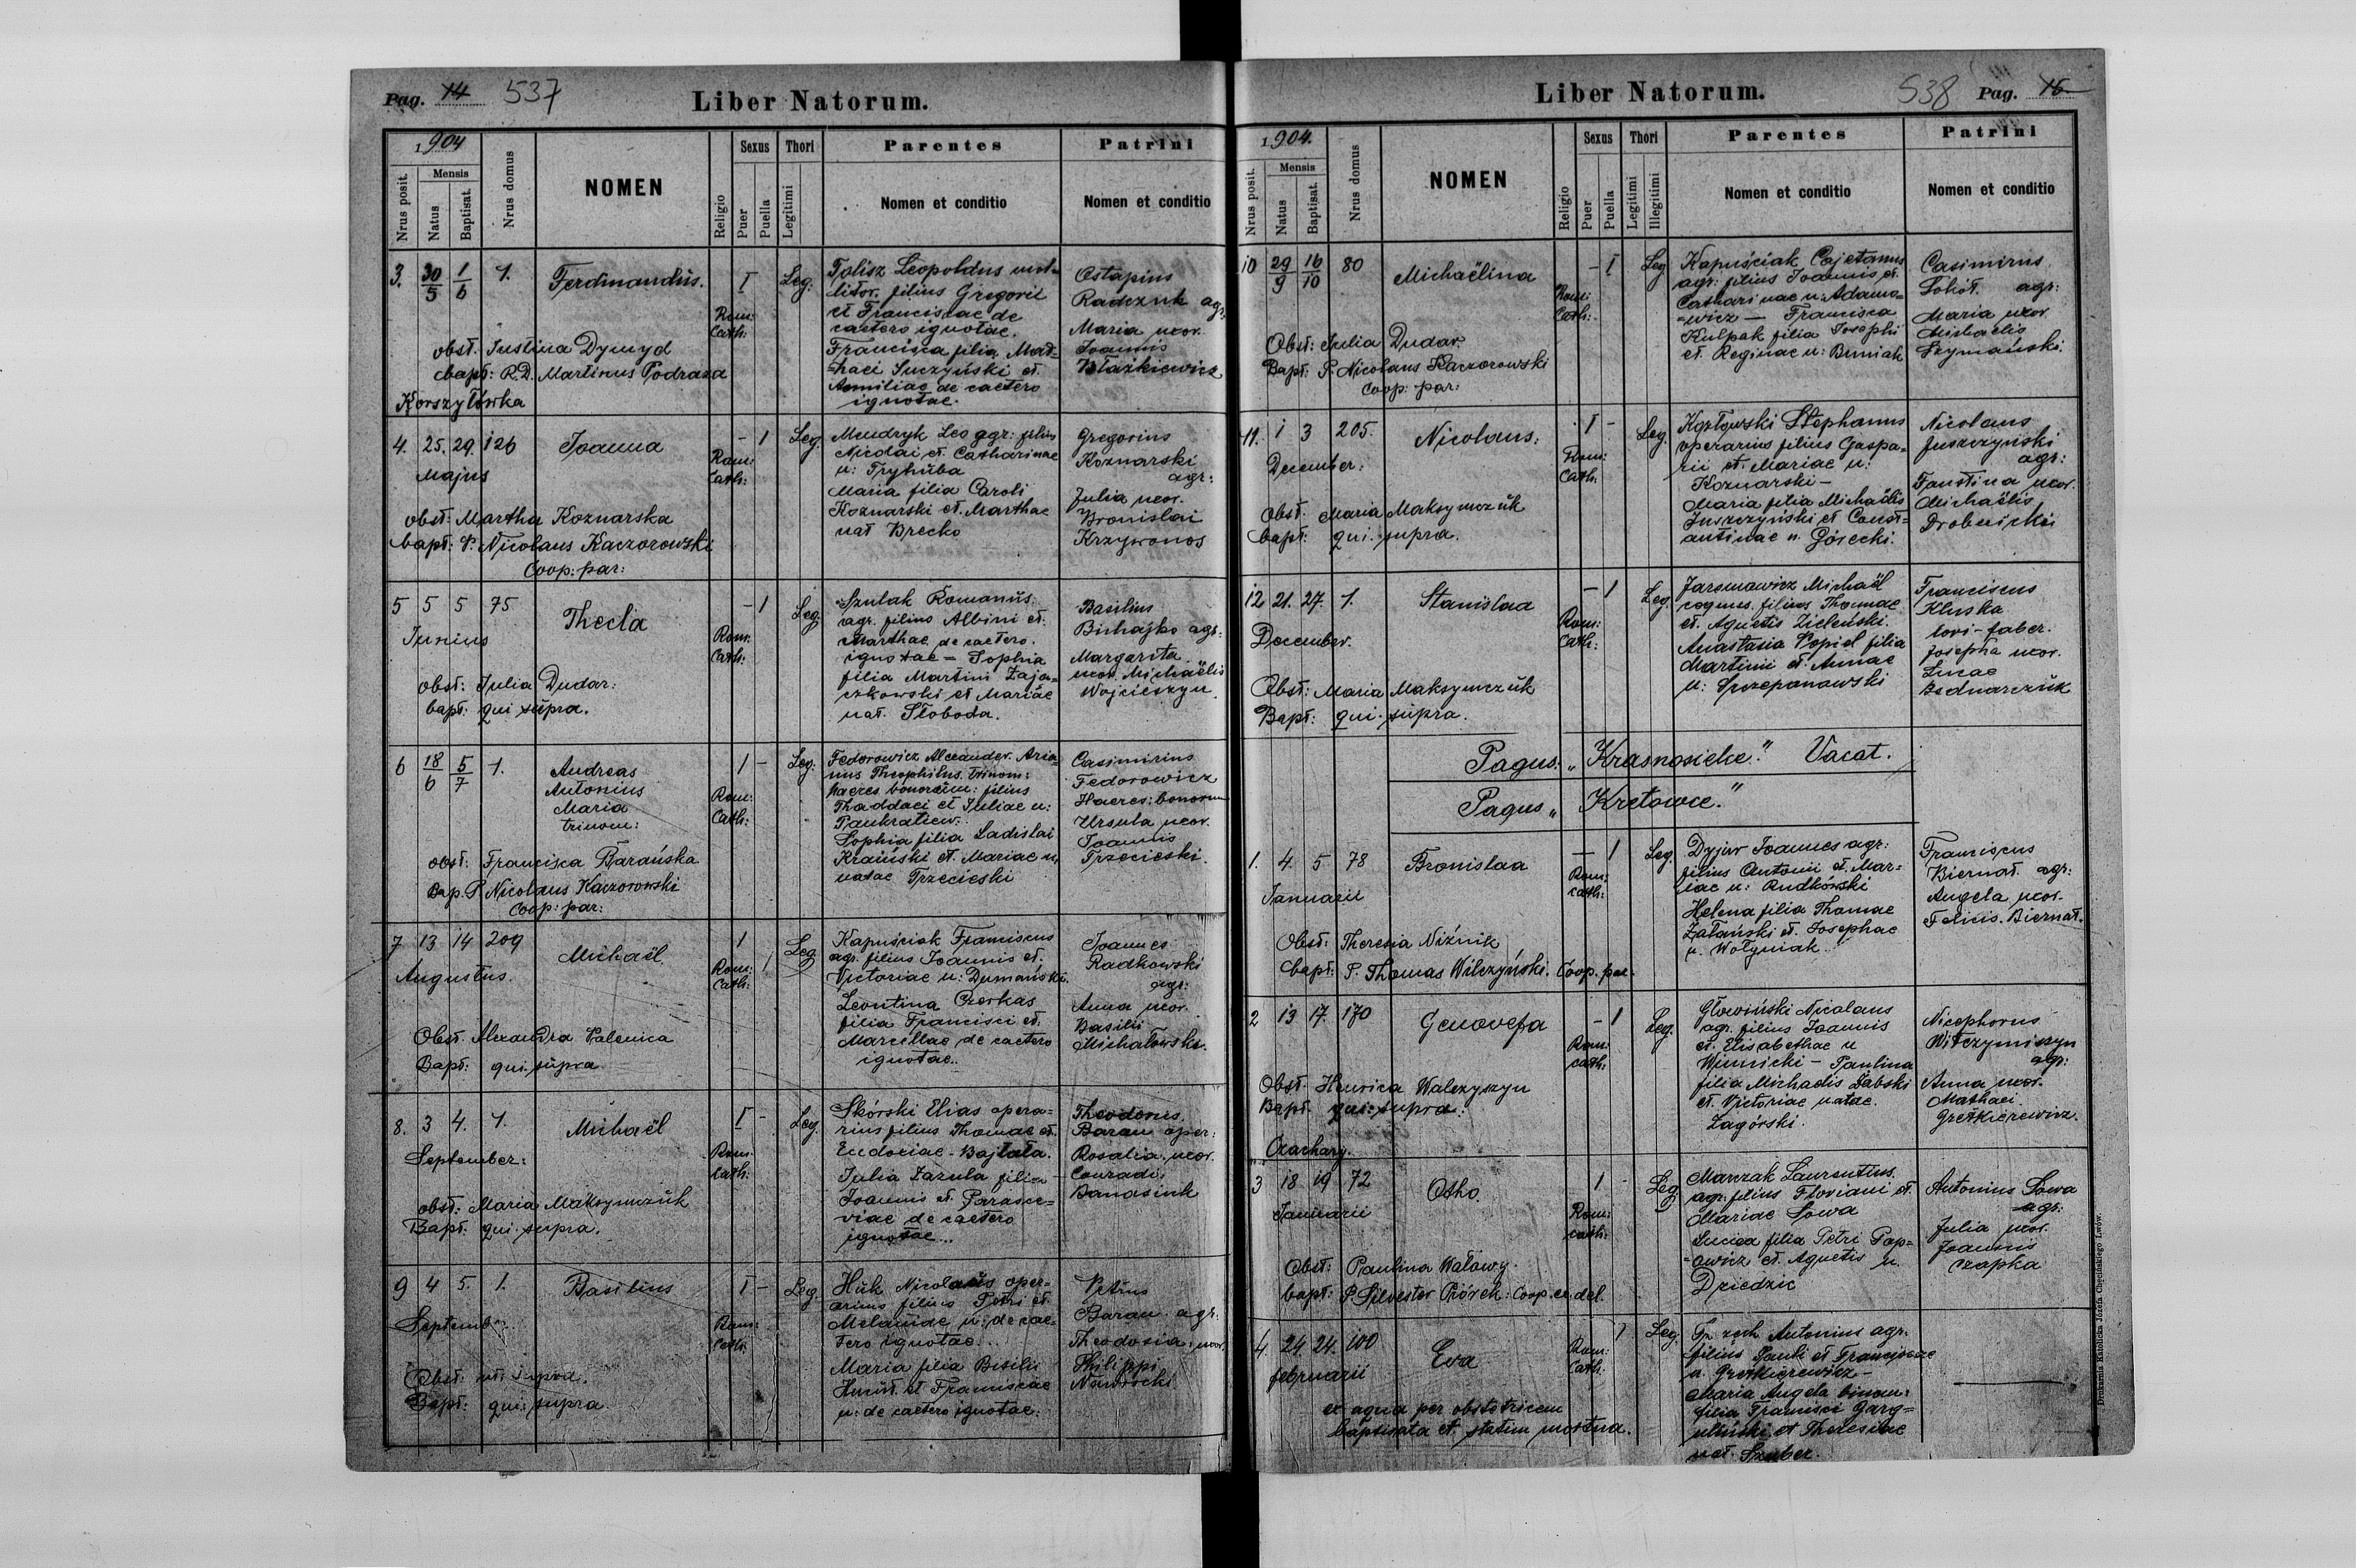 Pag. 14 537
Liber Natorum.
1904
Nrus posit.
Mensis
Natus
Baptisat.
Nrus domus
NOMEN
Religio
Sexus
Puer
Puella
Thori
Legitimi
Parentes
Nomen et conditio
Patrini
Nomen et conditio
3. 30/5 1/6 1. Ferdinandus. I Leg.
Rom:
Cath:
obst. Justina Dymyd
bapt: R.D. Martinus Podraza
Korszyłówka
Tolisz Leopoldus mol-
litor. filius Gregorii
et Franciscae de
caetero ignotae.
Francisca filia Mat-
haei Suczyński et
Aemiliae de caetero
ignotae.
Ostapius
Radczuk agr.
Maria uxor.
Joannis
Błażkiewicz
4. 25. 29. 126 Joanna - 1 Leg.
Majus
Rom:
Cath:
obst: Martha Koznarska
bapt: P. Nicolaus Kaczorowski
Coop: par:
Mendryk Leo agr: filius
Nicolai et Catharinae
n: Tryhuba
Maria filia Caroli
Koznarski et Marthae
nat Brecko
Gregorius
Koznarski
agr:
Julia uxor.
Bronislai
Krzywonos
5 5 5 75 Thecla - 1 Leg.
Junius
Rom:
Cath:
obst: Julia Dudar:
bapt: qui supra.
Szulak Romanus.
agr. filius Albini et
Marthae de caetero.
ignotae = Sophia
filia Martini Zaja-
czkowski et Mariae
nat. Słoboda.
Basilius
Bichajko agr:
Margarita
uxor. Michaëlis
Wojcieszyn
6 18/6 5/7 1. Andreas
Antonius
Maria
trinom:
1 - Leg.
Rom:
Cath:
obst: Francisca Barańska
Bap. P Nicolaus Kaczorowski
Coop: par:
Fedorowicz Alexander. Aria-
nus Theophilus trinom:
haeres bonorum: filius
Thaddaei et Juliae n:
Pankratiew:
Sophia filia Ladislai
Kraiński et Mariae n,
natae Trzecieski
Casimirius
Fedorowicz
Haeres: bonorum
Ursula uxor.
Joannis
Trzecieski.
7 13 14 209 Michaël. 1 Leg
Augustus.
Rom:
Cath:
Obst. Alexandra Palenica
Bapt: qui supra
Kapuściak Franciscus
agr. filius Joannis et
Victoriae n: Dumański.
Leontina Czerkas
filia Francisci et
Marcellae de caetero
ignotae..
Joannes
Radkowski
agr:
Anna uxor.
Basilii
Michałowski.
8. 3 4. 1. Michaël I - Leg.
September:
Rom:
Cath:
obst: Maria Maksymczuk
Bapt. qui supra.
Skórski Elias opera-
rius filius Thomae et
Eudociae - Bajtała.
Julia Zazula filia
Joannis et Parasce-
viae de caetero
ignotae...
Theodorus
Baran oper:
Rosalia uxor.
Conradi
Banasiuk
9 4 5. 1. Basilius I - Leg.
September
Rom:
Cath:
Obst: ut supra.
Bapt: qui: supra
Huk Nicolaus oper-
arius filius Petri et
Melaniae n: de cae-
tero ignotae...
Maria filia Basilii
et Franciscae
n: de caetero ignotae.
Petrus
Baran agr.
Theodosia uxor.
Philippi
Nawrocki
Liber Natorum.
538 Pag. 15
1904.
Nrus posit.
Mensis
Natus
Baptisat.
Nrus domus
NOMEN
Religio
Sexus
Puer
Puella
Thori
Legitimi
Illegitimi
Parentes
Nomen et conditio
Patrini
Nomen et conditio
10 29/9 16/10 80 Michaëlina - I Leg
Rom:
Cath:
Obst: Julia Dudar.
Bapt: P. Nicolaus Kaczorowski
Coop: par:
Kapuściak Cajetanus
agr: filius Joannis et
Catharinae n: Adamo-
=wicz — Francisca
Kulpak filia Josephi
et Reginae n: Buniak
Casimirus
Sokół. agr:
Maria uxor
Michaelis
Szymański.
11. 1 3 205. Nicolaus: I - Leg.
December:
Rom:
Cath:
Obst. Maria Maksymczuk
bapt: qui supra.
Kozłowski Stephanus
operarius filius Gaspa-
rii et Mariae n:
Koznarski -
Maria filia Michaëlis
Juszczyński et Const-
antinae n. Górecki.
Nicolaus
Juszczyński
agr:
Faustina uxor.
Michaëlis
Drobnicki
12 21. 27. 1. Stanislaa - 1 Leg.
December.
Rom:
Cath:
Obst: Maria Maksymczuk
Bapt: qui supra.
Jaremowicz Michaël
coquus. filius Thomae
et Agnetis Zieleński.
Anastasia Popiel filia
Martini et Annae
n: Szczepanowski
Franciscus
Kluska
lori-faber.
Josepha uxor.
Lucae
Bednarczuk
Pagus. „Krasnosielce." Vacat.
Pagus „Krétowce."
1. 4. 5 78 Bronislaa — 1 Leg.
Januarii
Rom:
Cath:
Obst: Theresia Niźnik
bapt: P. Thomas Wilczyński. Coop. par.
Joannes agr:
filius Antonii et Mar-
iae n: Rudkowski
Helena filia Thomae
Załański et Josephae
n. Wołyniak.
Franciscus
Biernat. agr:
Angela uxor.
Felicis. Biernat.
2 13 17. 170 Genovefa - 1 Leg.
Rom:
Cath:
Obst. Henrica Walczyszyn
Bapt. qui supra:
Czachary.
Głowiński Nicolaus
agr. filius Joannis
et. Elisabethae n
Winnicki - Paulina
filia Michaelis Dabski
et. Victoriae natae.
Zagórski.
Nicephorus
Witczymiszyn
agr:
Anna uxor.
Mathaei
Gretkierewicz.
3 18 19 72 Otho. 1 - Leg
Januarii
Rom:
Cath:
Obst: Paulina Wałowy.
bapt: P Silvester Piórek: Coop. ex. del.
Marczak Laurentius.
agr. filius Floriani et
Mariae Sowa
Lucia filia Petri Pop-
=owicz et Agnetis n.
Dziedzic
Antonius Sowa
agr:
Julia uxor.
Joannis
Czapka
4. 24. 24. 100 Eva 1 Leg.
februarii
Rom:
Cath.
ex aqua per obstetricem
baptisata et statim mortua.
Antonius agr.
filius Pauli et Franciscae
n. Gretkierewicz -
Maria Angela binom:
filia Francisci Garg-
uliński et Theresiae
nat. Szuber.
Drukarnia Katolicka Józefa Chęcińskiego Lwów.